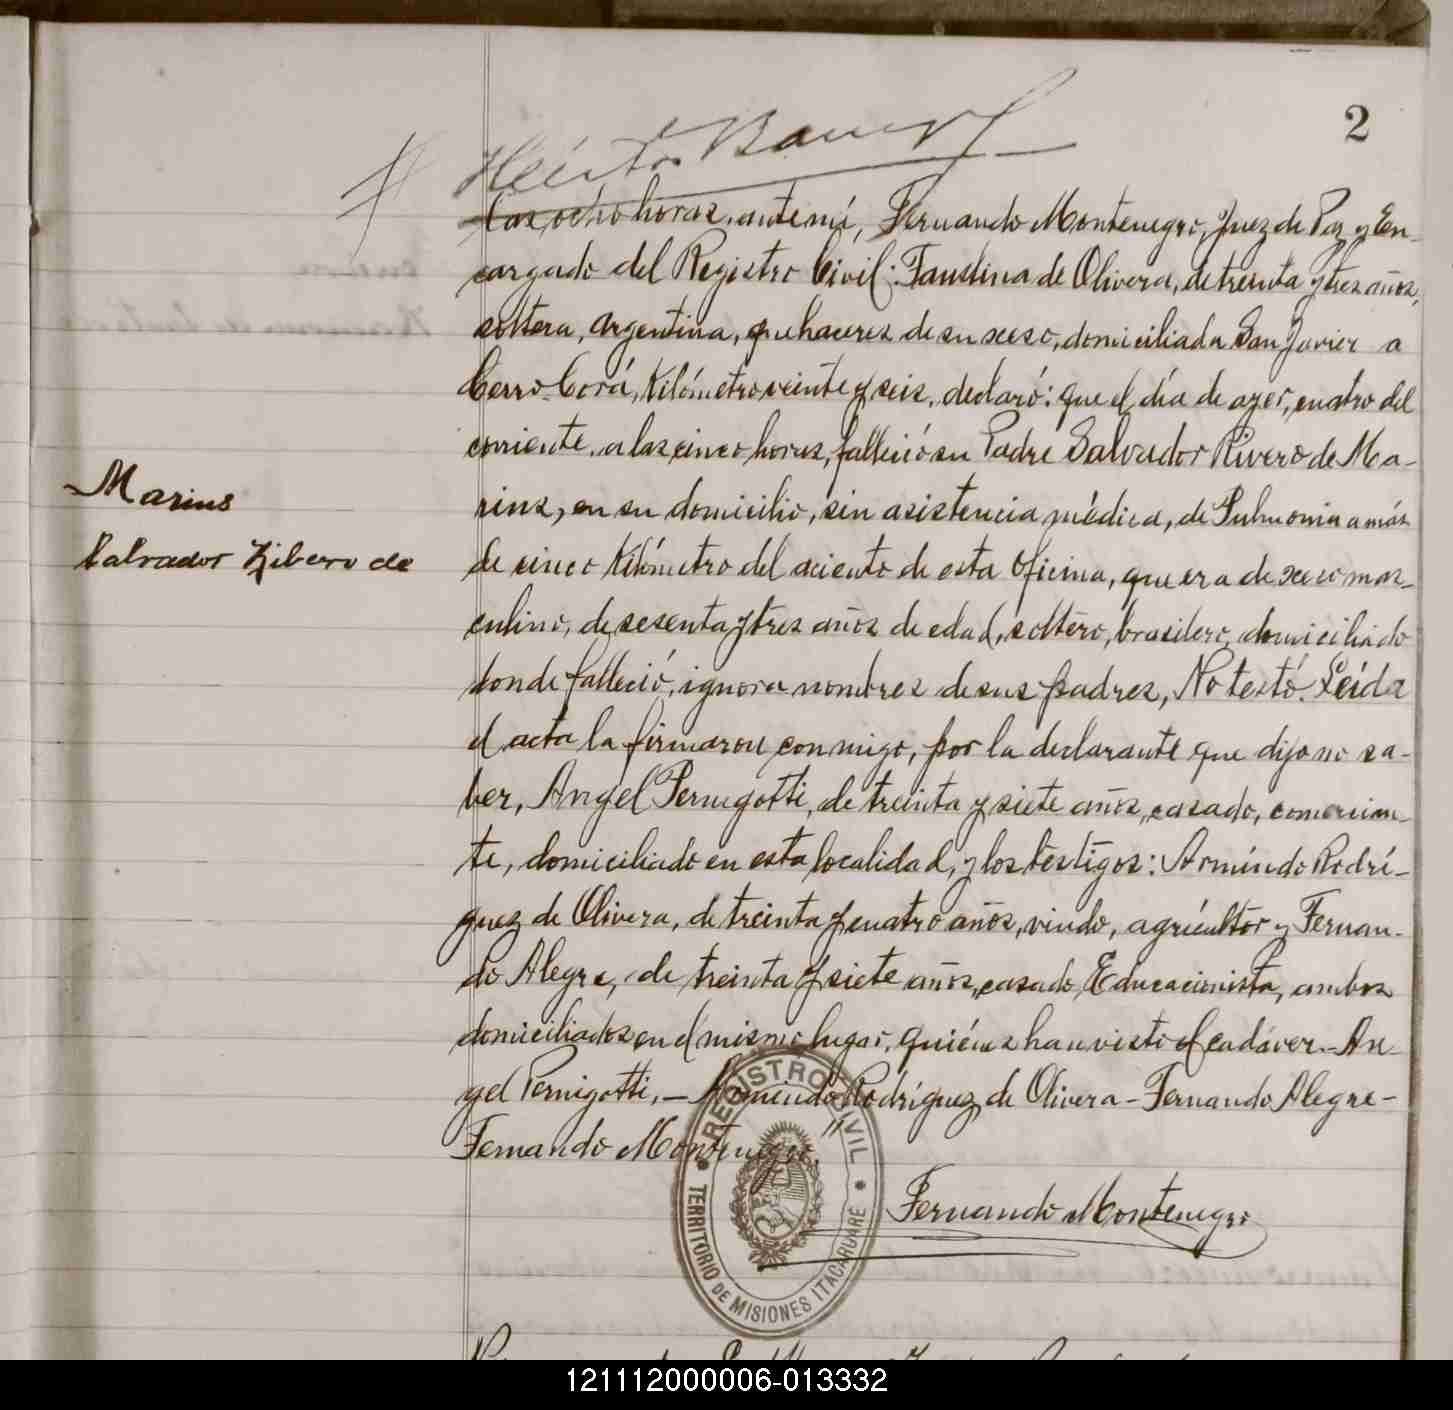 2
Héctor
las ocho horas, ante mí, Fernando Montenegro, Juez de Paz y En-
cargado del Registro Civil: Faustina de Olivera, de treinta y tres años,
soltera, Argentina, quehaceres de su sexso, domiciliada San Javier a
Cerro-Corá, Kilómetro veinte y seis, declaró: que el día de ayer, cuatro del
corriente, a las cinco horas, falleció su Padre Salvador Rivero de Ma-
rins, en su domicilio, sin asistencia médica, de Pulmonia a más
Marins
de cinco Kilómetro del aciento de esta Oficina, que era de sexso mas-
Salvador Ribero de
culino, de sesenta y tres años de edad, soltero, brasilero, domiciliado
donde falleció, ignora nombres de sus padres, No testó. Leída
el acta la firmaron conmigo, por la declarante que dijo no sa-
ber, Angel Pernigotti, de treinta y siete años, casado, comercian-
te, domiciliado en esta localidad, y los testigos: Armindo Rodrí-
guez de Olivera, de treinta y cuatro años, viudo, agricultor y Fernan-
do Alegre, de treinta y siete años, casado, Educacionista, ambos
domiciliados en el mismo lugar, quiénes han visto el cadáver.- An-
gel Pernigotti,- Armindo Rodríguez de Olivera - Fernando Alegre -
Fernando Montenegro."
REGISTRO CIVIL
TERRITORIO DE MISIONES ITACARUARE
Fernando Montenegro
121112000006-013332